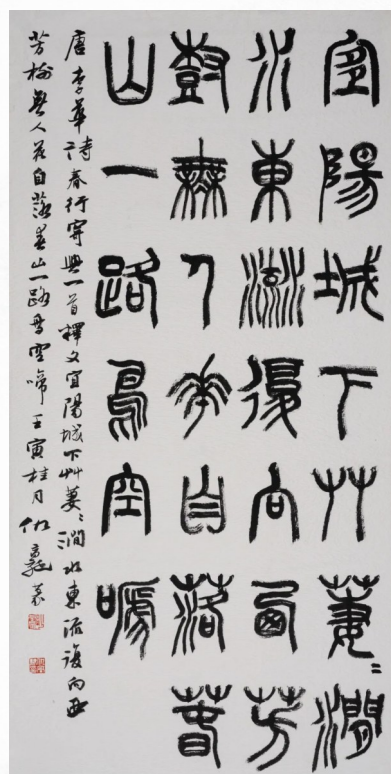 宜陽城下艸萋〻澗
水東流復向西芳
樹無人華自落春
山一路鳥空嗁
唐李華詩春行寄興一首釋文宜陽城下艸萋〻澗水東流復向西
芳樹無人花自落春山一路鳥空啼壬寅桂月